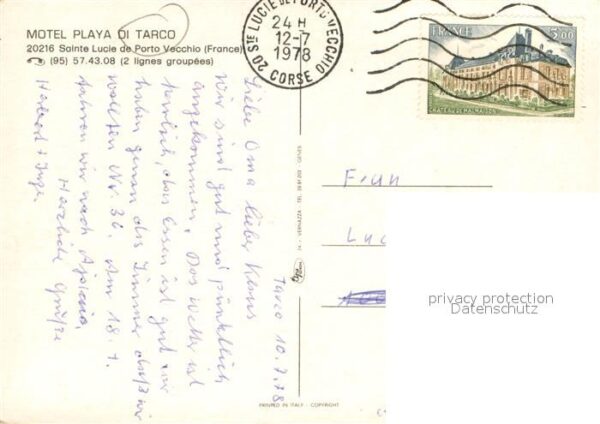 MOTEL PLAYA DI TARCO
20216 Sainte Lucie de Porto Vecchio (France)
(95) 57.43.08 (2 lignes groupées)
20 STE LUCIE DE PORTO-VECCHIO
24 H
12-7
1978
CORSE
FRANCE 5,00
CHATEAU DE MALMAISON
Tarco 10.7.78
Liebe Oma lieber Klaus
Wir sind gut und pünktlich
angekommen. Das Wetter ist
herrlich, das Essen ist gut wir
haben genau das Zimmer daß wir
wollten Nr. 36. Am 18.7.
fahren wir nach Ajaccio.
Herzliche Grüße
Herbert + Inge
74 - VERNAZZA
PRINTED IN ITALY - COPYRIGHT
Frau
Luc
privacy protection
Datenschutz